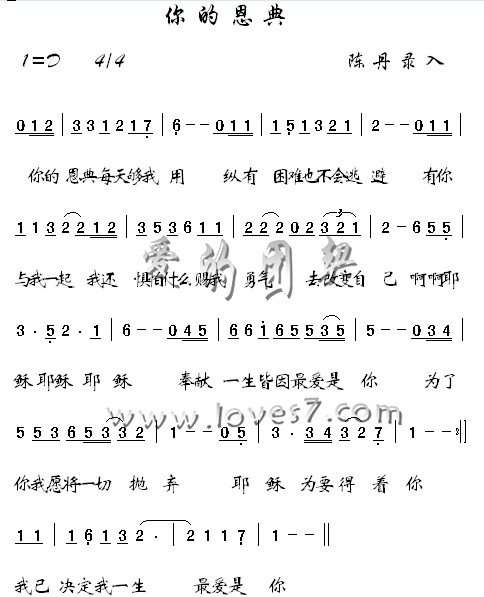 你的恩典
1=D 4/4 陈丹录入
0 1 2 | 3 3 1 2 1 7 | 6 - - 0 1 1 | 1 5 1 3 2 1 | 2 - - 0 1 1 |
你的 恩典每天够我 用 纵有 困难也不会逃 避 有你
1 1 3 2 2 1 2 | 3 5 3 6 1 1 | 2 2 2 0 2 3 2 1 | 2 - 6 5 5 |
与我一起 我还 惧怕什么 赐我 勇气 去改变自 己 啊啊耶
爱的团契
3 · 5 2 · 1 | 6 - - 0 4 5 | 6 6 1 6 5 5 3 5 | 5 - - 0 3 4 |
稣 耶稣 耶 稣 奉献 一生皆因最爱是 你 为了
www.loves7.com
5 5 3 6 5 3 3 2 | 1 - - 0 5 | 3 · 3 4 3 2 7 | 1 - - :||
你我愿将一切 抛 弃 耶 稣 为要得 着 你
1 1 | 1 6 1 3 2 · | 2 1 1 7 | 1 - - ||
我已 决定我一生 最爱是 你